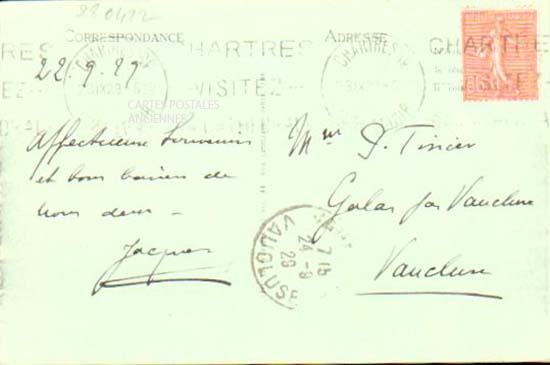 220412
CORRESPONDANCE
ADRESSE
CHARTRES
CHARTRES
VISITEZ
VISITEZ
22.9.29
CARTES POSTALES
ANCIENNES
Affectueux Souvenirs
et bons baisers de
nous deux -
Jacques
Mme P. Tissier
Galas par Vaucluse
Vaucluse
7 15
24-9
29
VAUCLUSE